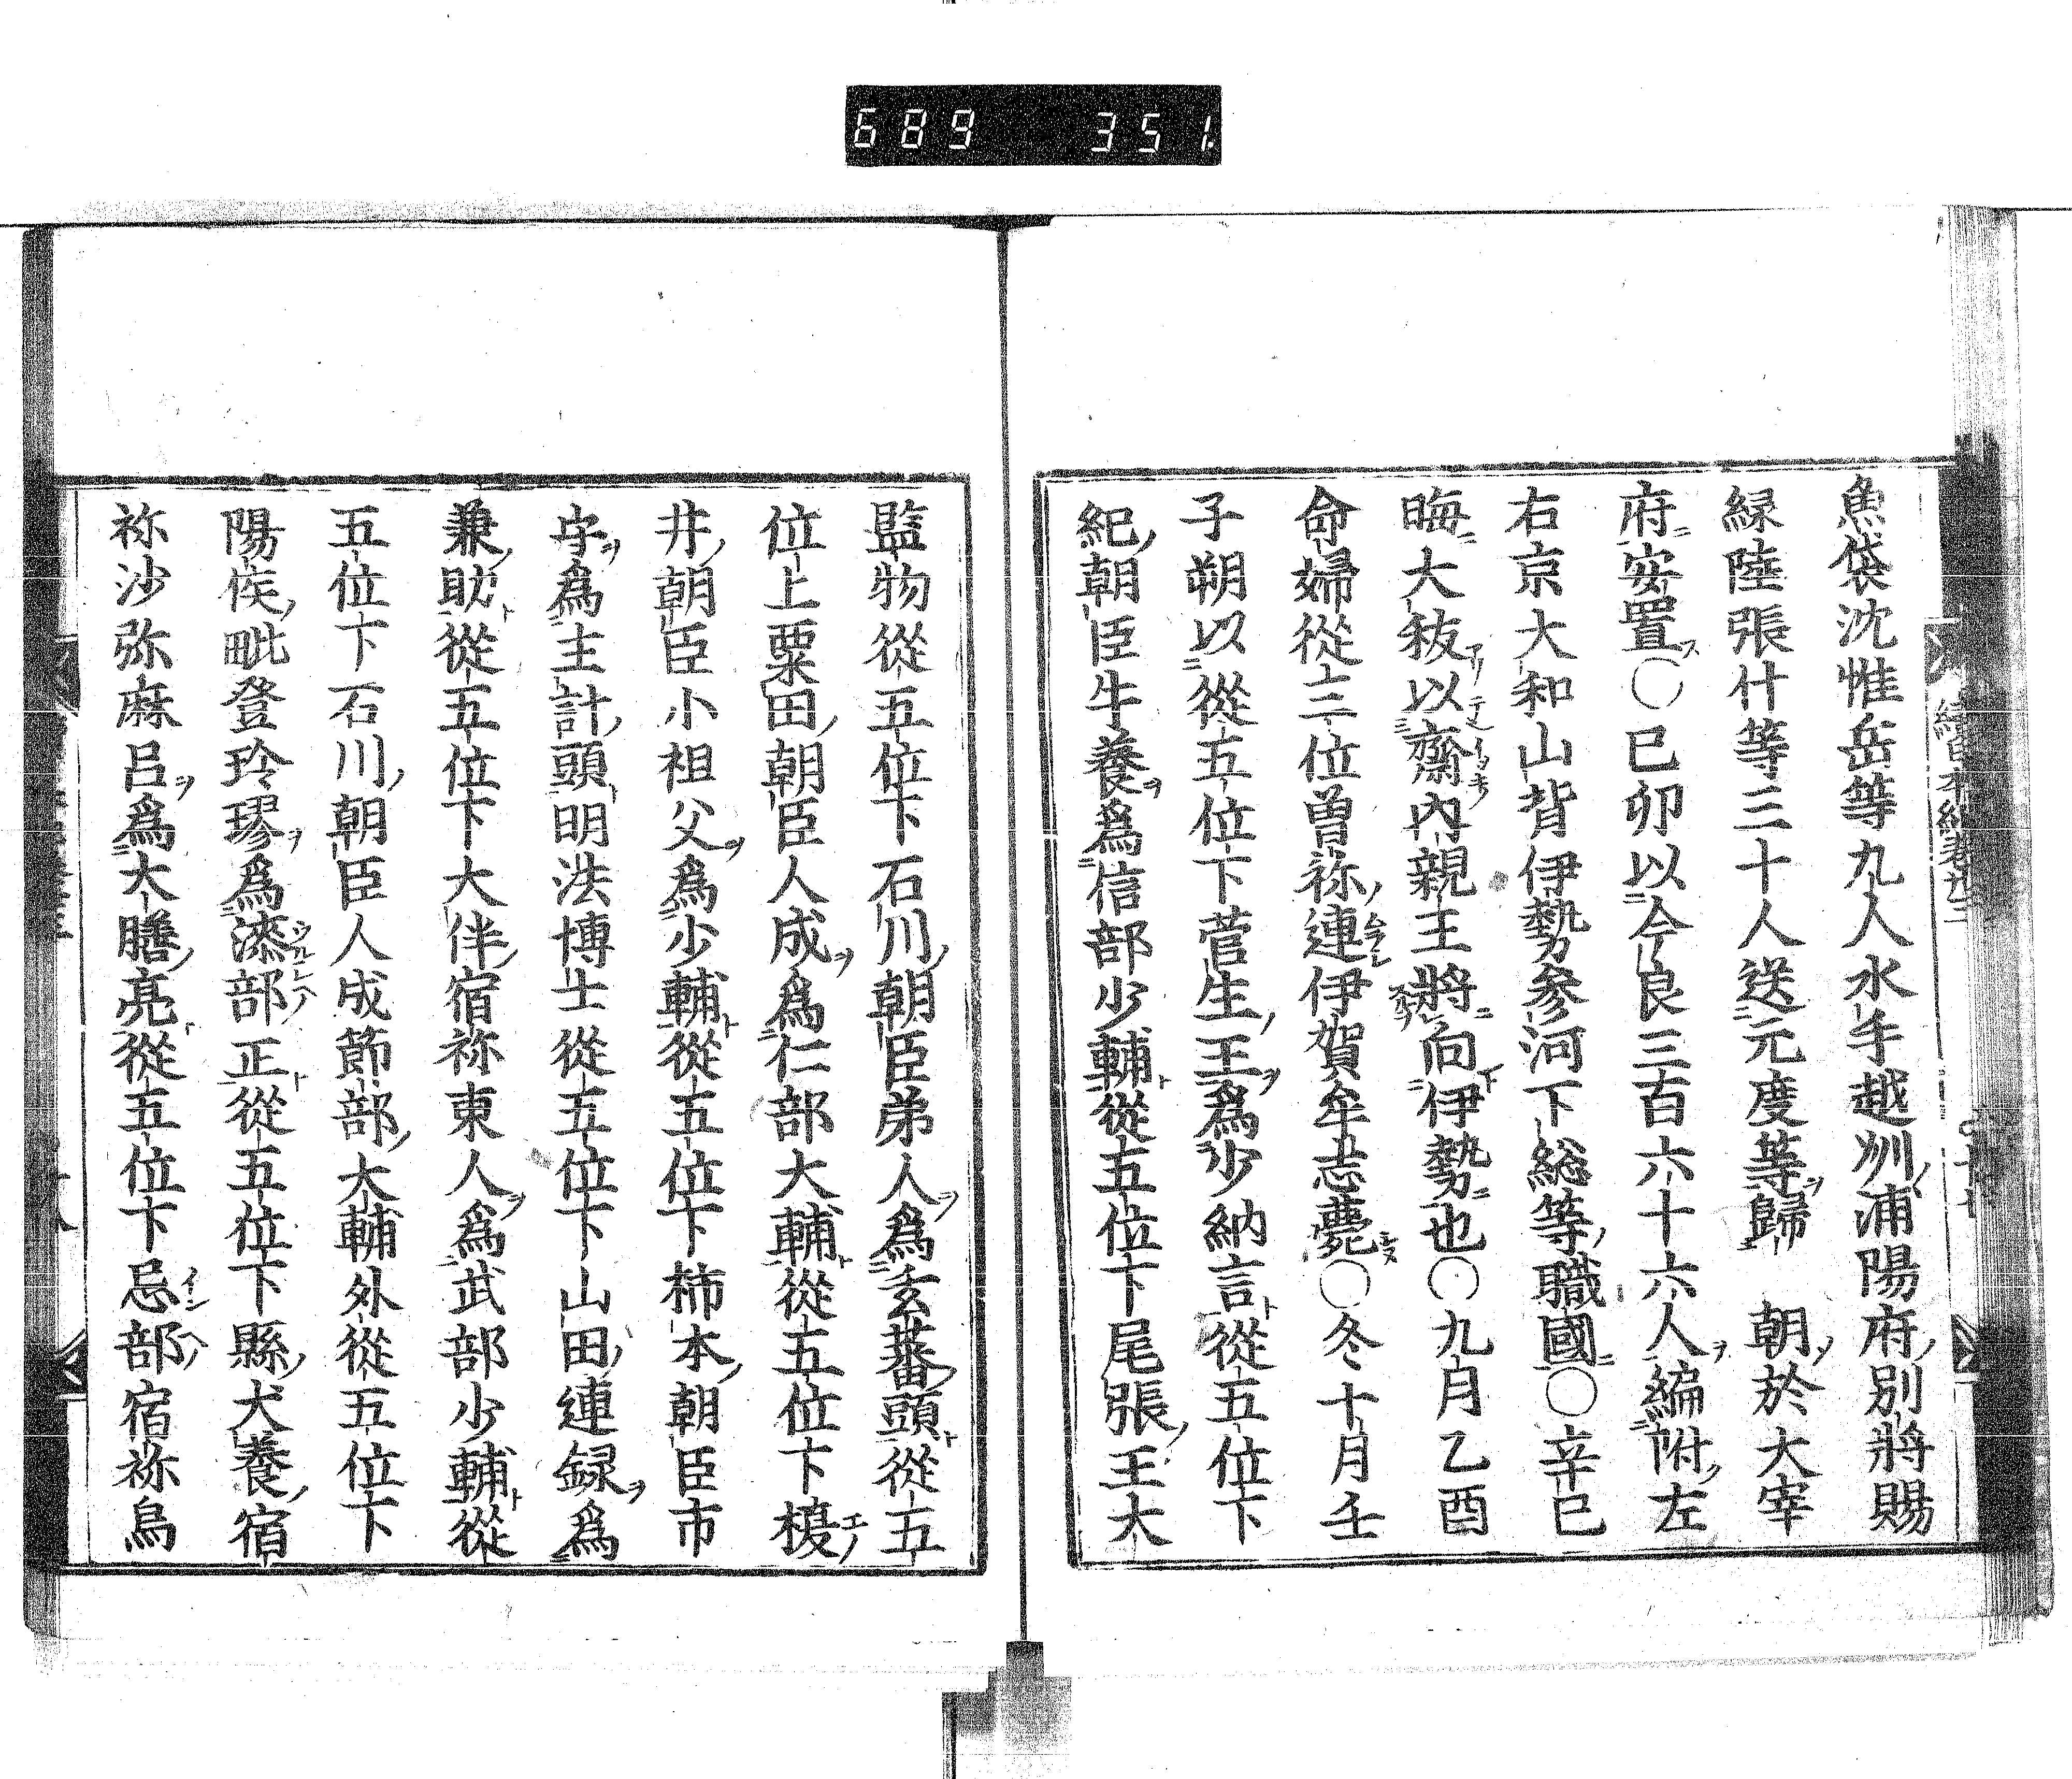 689 351
魚袋沈惟岳等九人水手越州浦陽府別將賜
緑陸張什等三十人送元度等歸　朝於大宰
府安置○已卯以今良三百六十六人編附左
右京大和山背伊勢參河下総等職國○辛巳
晦大秡以齋内親王將向伊勢也○九月乙酉
命婦從三位曽祢連伊賀牟志薨○冬十月壬
子朔以從五位下菅生王爲少納言從五位下
紀朝臣牛養爲信部少輔從五位下尾張王大
監物從五位下石川朝臣弟人爲玄蕃頭從五
位上粟田朝臣人成爲仁部大輔從五位下榎
井朝臣小祖父爲少輔從五位下柿本朝臣市
守爲主計頭明法博士從五位下山田連録爲
兼助從五位下大伴宿祢東人爲武部少輔從
五位下石川朝臣人成節部大輔外從五位下
陽侯毗登玲璆爲漆部正從五位下縣犬養宿
祢沙弥麻呂爲大膳亮從五位下忌部宿祢烏